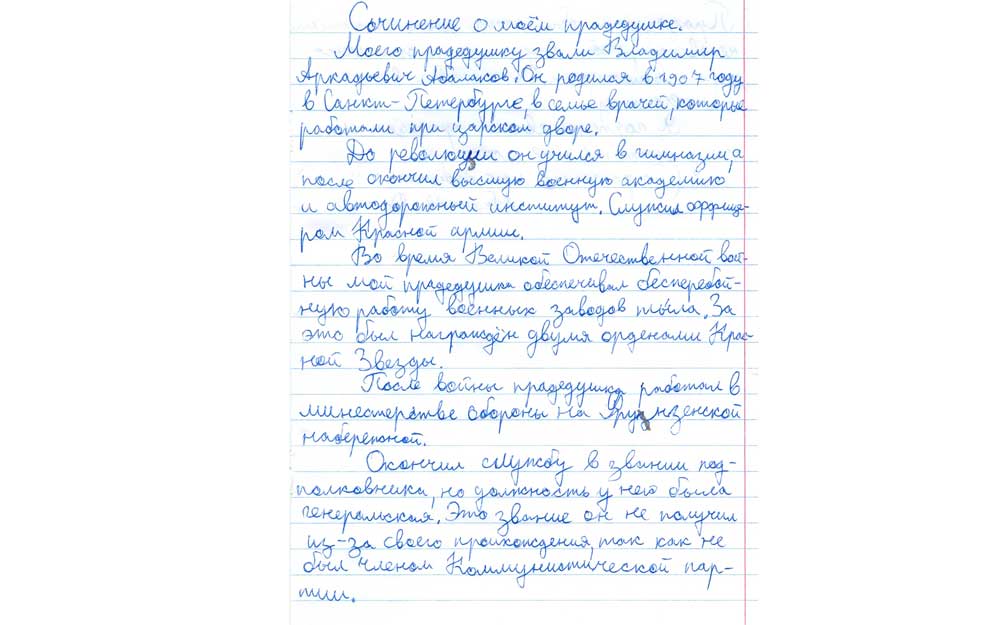 Сочинение о моём прадедушке.
Моего прадедушку звали Владимир
Аркадьевич Абалаков. Он родился в 1907 году
в Санкт-Петербурге, в семье врачей, которые
работали при царском дворе.
До революции он учился в гимназии, а
после окончил высшую военную академию
и автодорожный институт. Служил оффице-
ром Красной армии.
Во время Великой Отечественной вой-
ны мой прадедушка обеспечивал бесперебой-
ную работу военных заводов тыла. За
это был награждён двумя орденами Крас-
ной Звезды.
После войны прадедушка работал в
министерстве обороны на Фрунзенской
набережной.
Окончил службу в звании под-
полковника, но должность у него была
генеральская. Это звание он не получил
из-за своего происхождения, так как не
был членом Коммунистической пар-
тии.